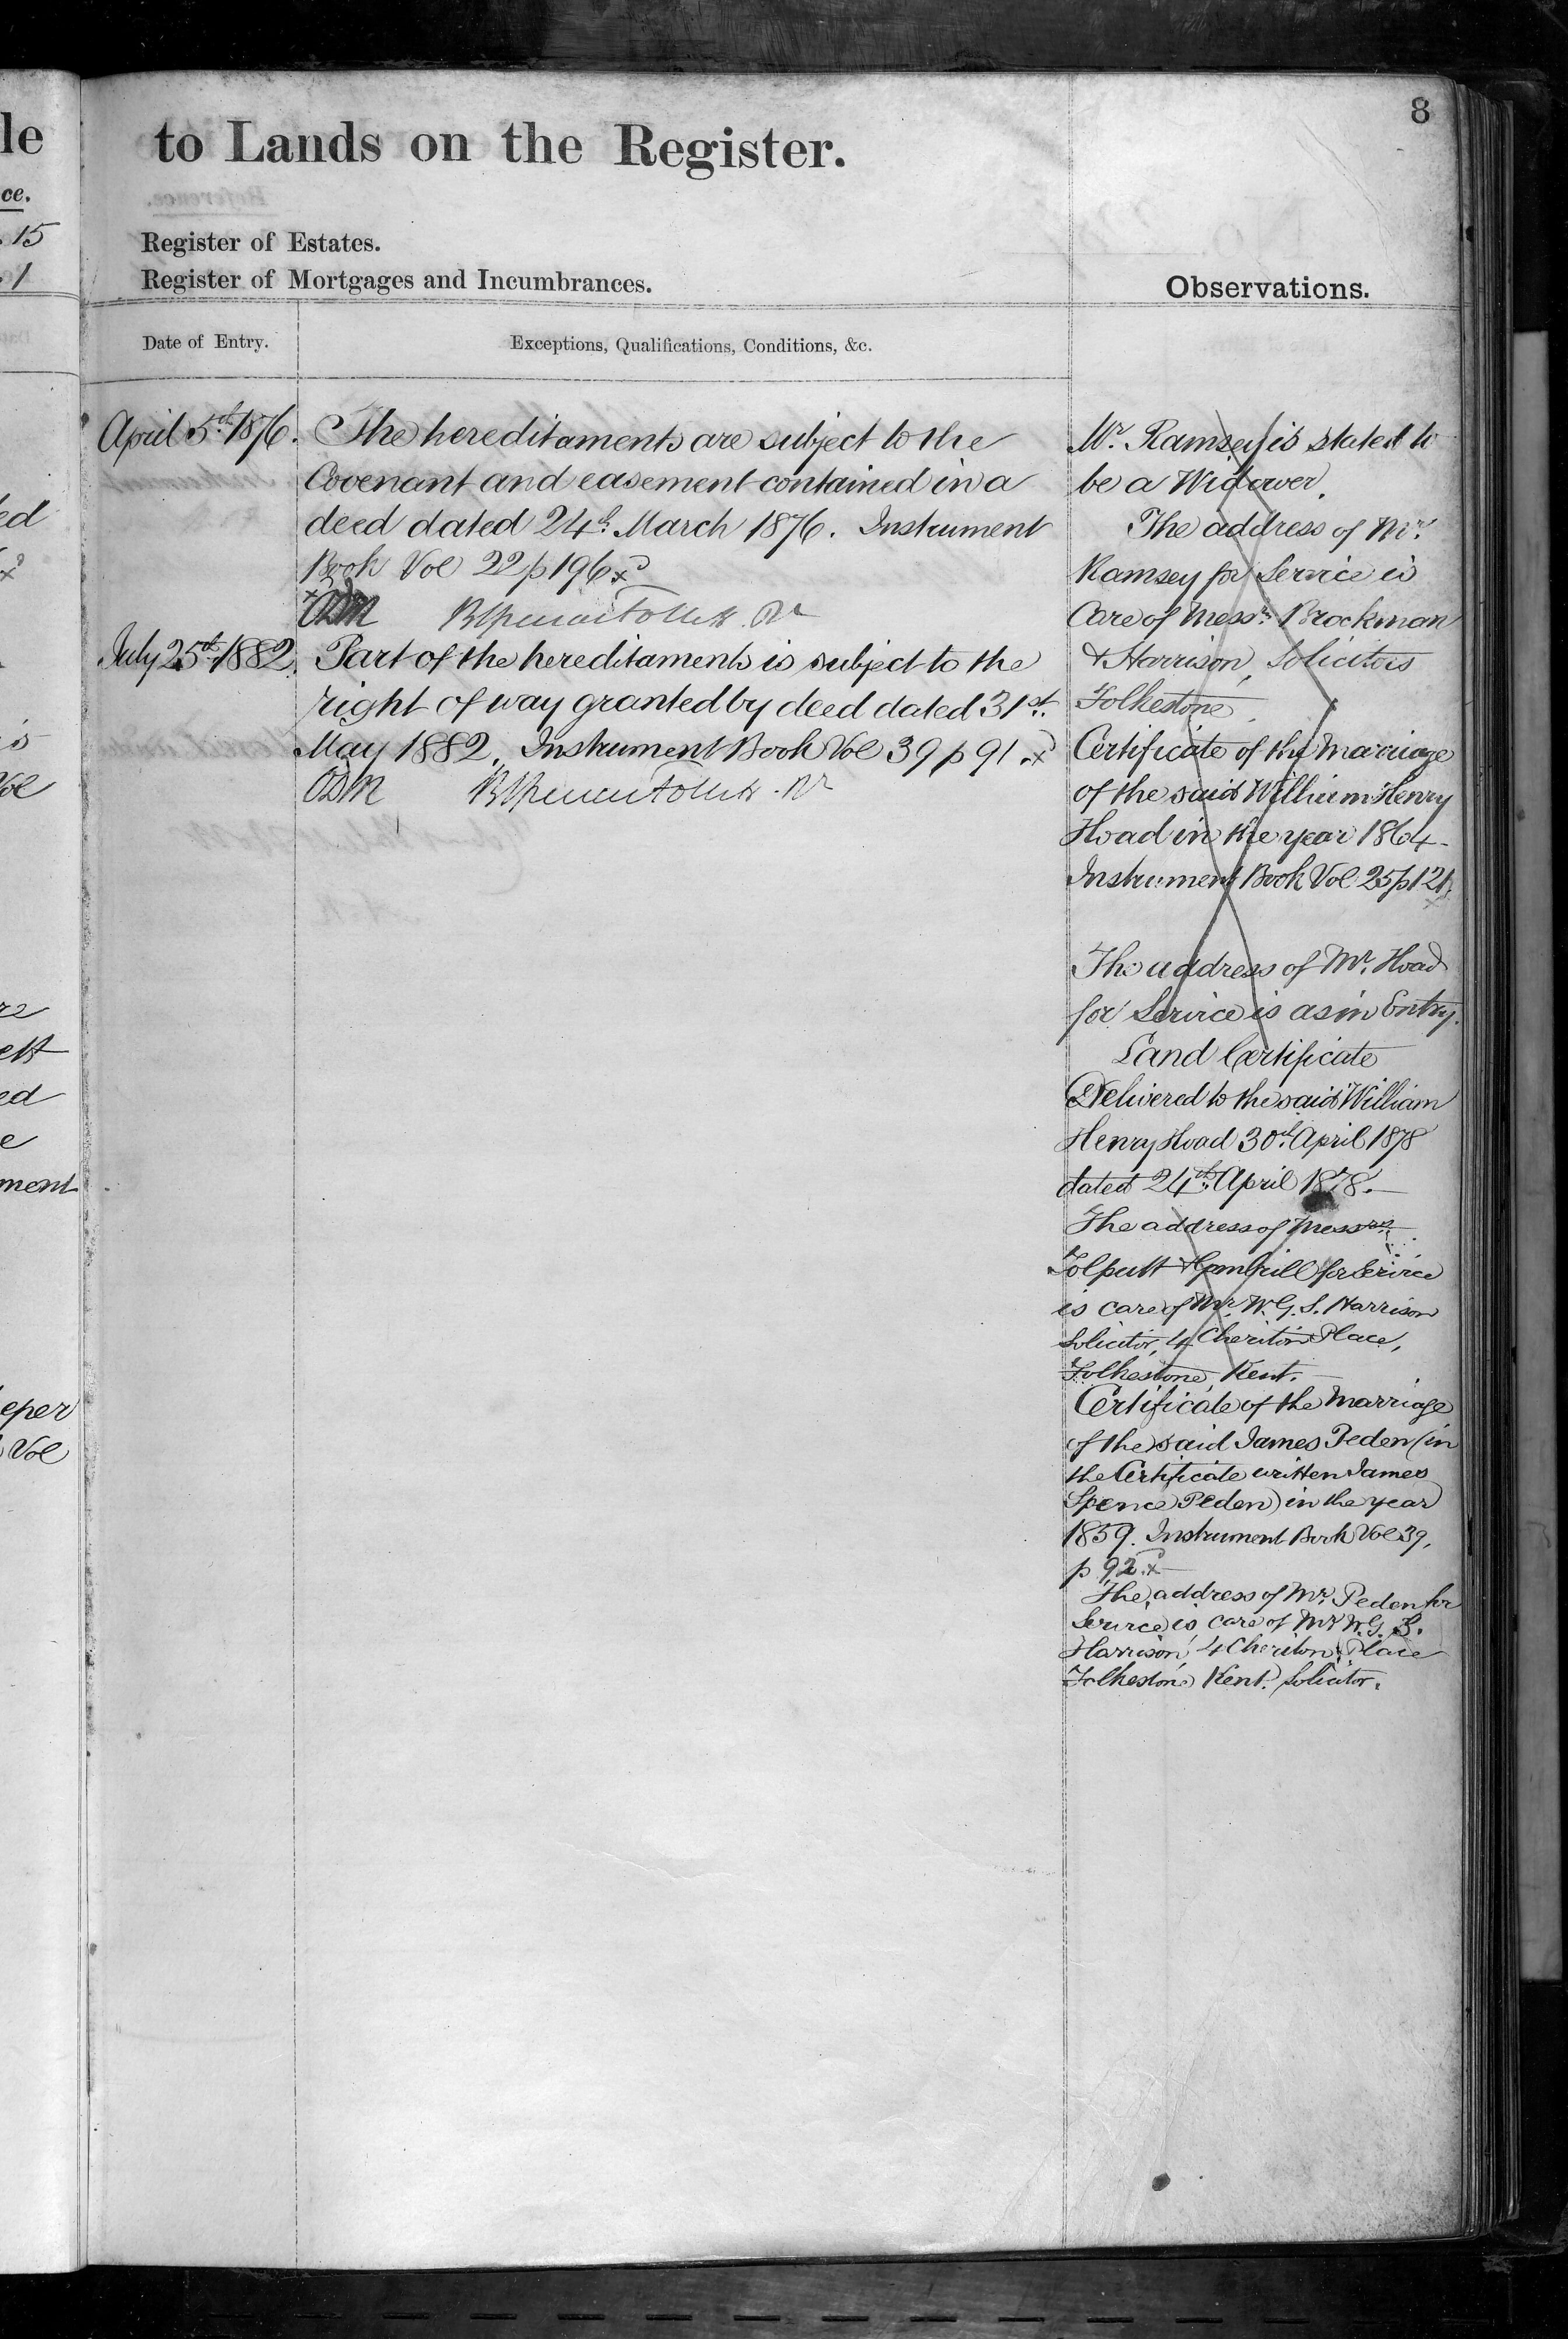 8
le
to Lands on the Register.
ce.
. 15
. 1
Register of Estates.
Register of Mortgages and Incumbrances.
Observations.
Date of Entry.
Exceptions, Qualifications, Conditions, &c.
April 5th 1876.
The hereditaments are subject to the
Covenant and easement contained in a
deed dated 24th March 1876. Instrument
Book Vol 22 p 196
July 25th 1882.
Part of the hereditaments is subject to the
right of way granted by deed dated 31st
May 1882. Instrument Book Vol 39 p 91
Mr. Ramsey is stated to
be a Widower.
The address of Mr.
Ramsey for Service is
Care of Messrs Brockman
& Harrison, Solicitors
Folkestone.
Certificate of the Marriage
of the said William Henry
Hoad in the year 1864
Instrument Book Vol 25 p 121
The address of Mr. Hoad
for Service is as in Entry.
Land Certificate
Delivered to the said William
Henry Hoad 30th April 1878
dated 24th April 1878.
The address of Messrs
Tolputt & Gambrill for Service
is care of Mr. W. G. S. Harrison
Solicitor, 4 Cheriton Place,
Folkestone, Kent.
Certificate of the Marriage
of the said James Peden (in
the Certificate written James
Spence Peden) in the year
1859. Instrument Book Vol 39,
p 92.
The address of Mr. Peden for
Service is care of Mr W. G. S.
Harrison, 4 Cheriton Place
Folkestone Kent. Solicitor.
ed
is
Vol
ett
ed
e
ment
eper
Vol